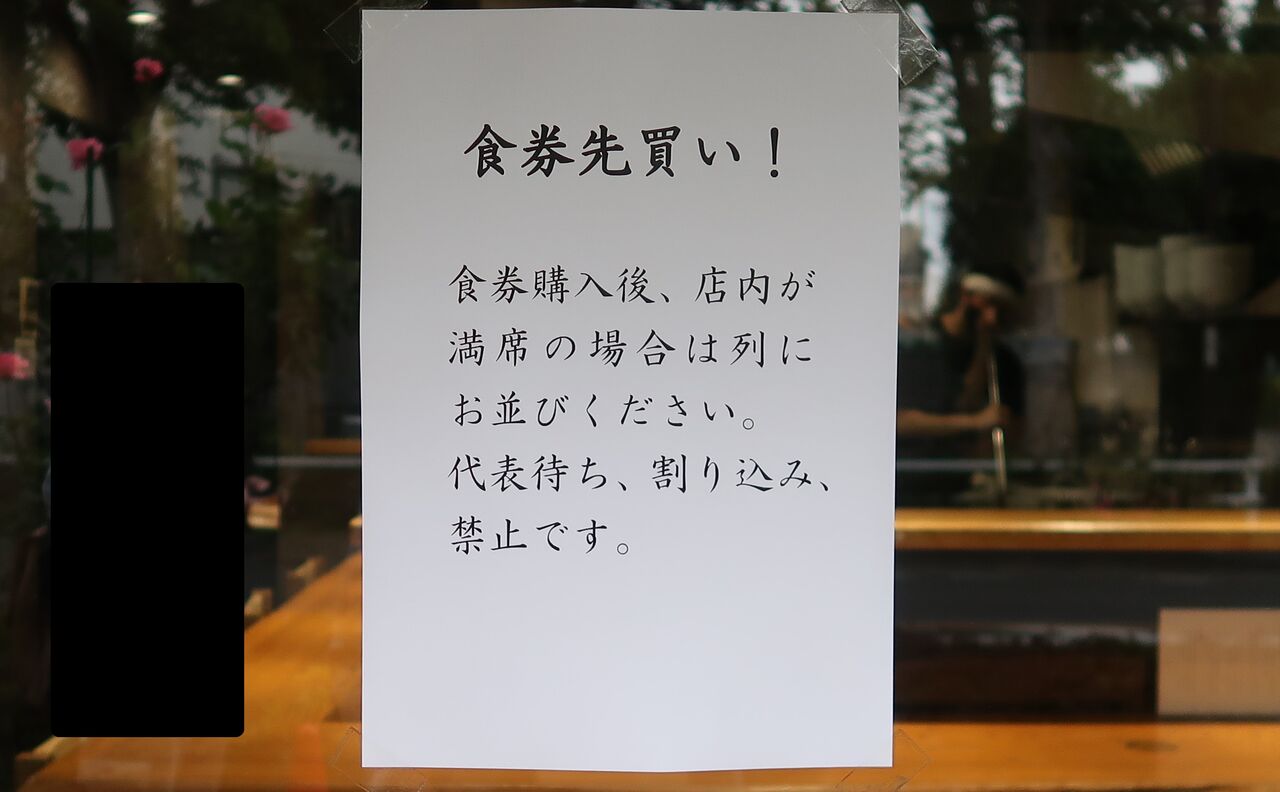 食券先買い！
食券購入後、店内が
満席の場合は列に
お並びください。
代表待ち、割り込み、
禁止です。